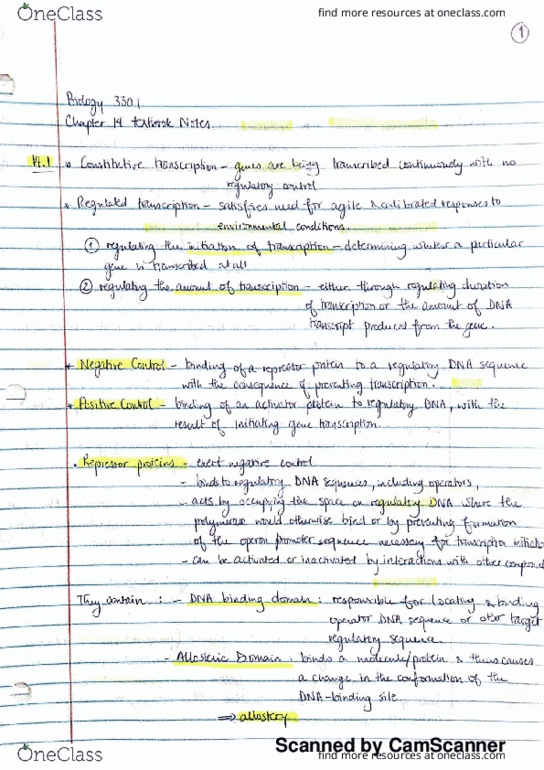 OneClass
find more resources at oneclass.com
1
Biology 3301
Chapter 14 textbook Notes.
14.1 * Constitutive transcription - genes are being transcribed continuously with no
regulatory control
* Regulated transcription - satisfies need for agile & calibrated responses to
environmental conditions.
① regulating the initiation of transcription - determining whether a particular
gene is transcribed at all
② regulating the amount of transcription - either through regulating duration
of transcription or the amount of DNA
transcript produced from the gene.
* Negative Control - binding of a repressor protein to a regulatory DNA sequence
with the consequence of preventing transcription.
* Positive Control - binding of an activator protein to regulatory DNA, with the
result of initiating gene transcription.
• Repressor proteins - exert negative control
- binds to regulatory DNA sequences, including operators,
- acts by occupying the space on regulatory DNA where the
polymerase would otherwise bind or by preventing formation
of the open promoter sequence necessary for transcription
- can be activated or inactivated by interactions with other
They contain : - DNA binding domain : responsible for locating & binding
operator DNA sequence or other target
regulatory sequence.
- Allosteric Domain : binds a molecule/protein & thus causes
a change in the conformation of the
DNA-binding site
⇒ allostery
Scanned by CamScanner
OneClass
find more resources at oneclass.com